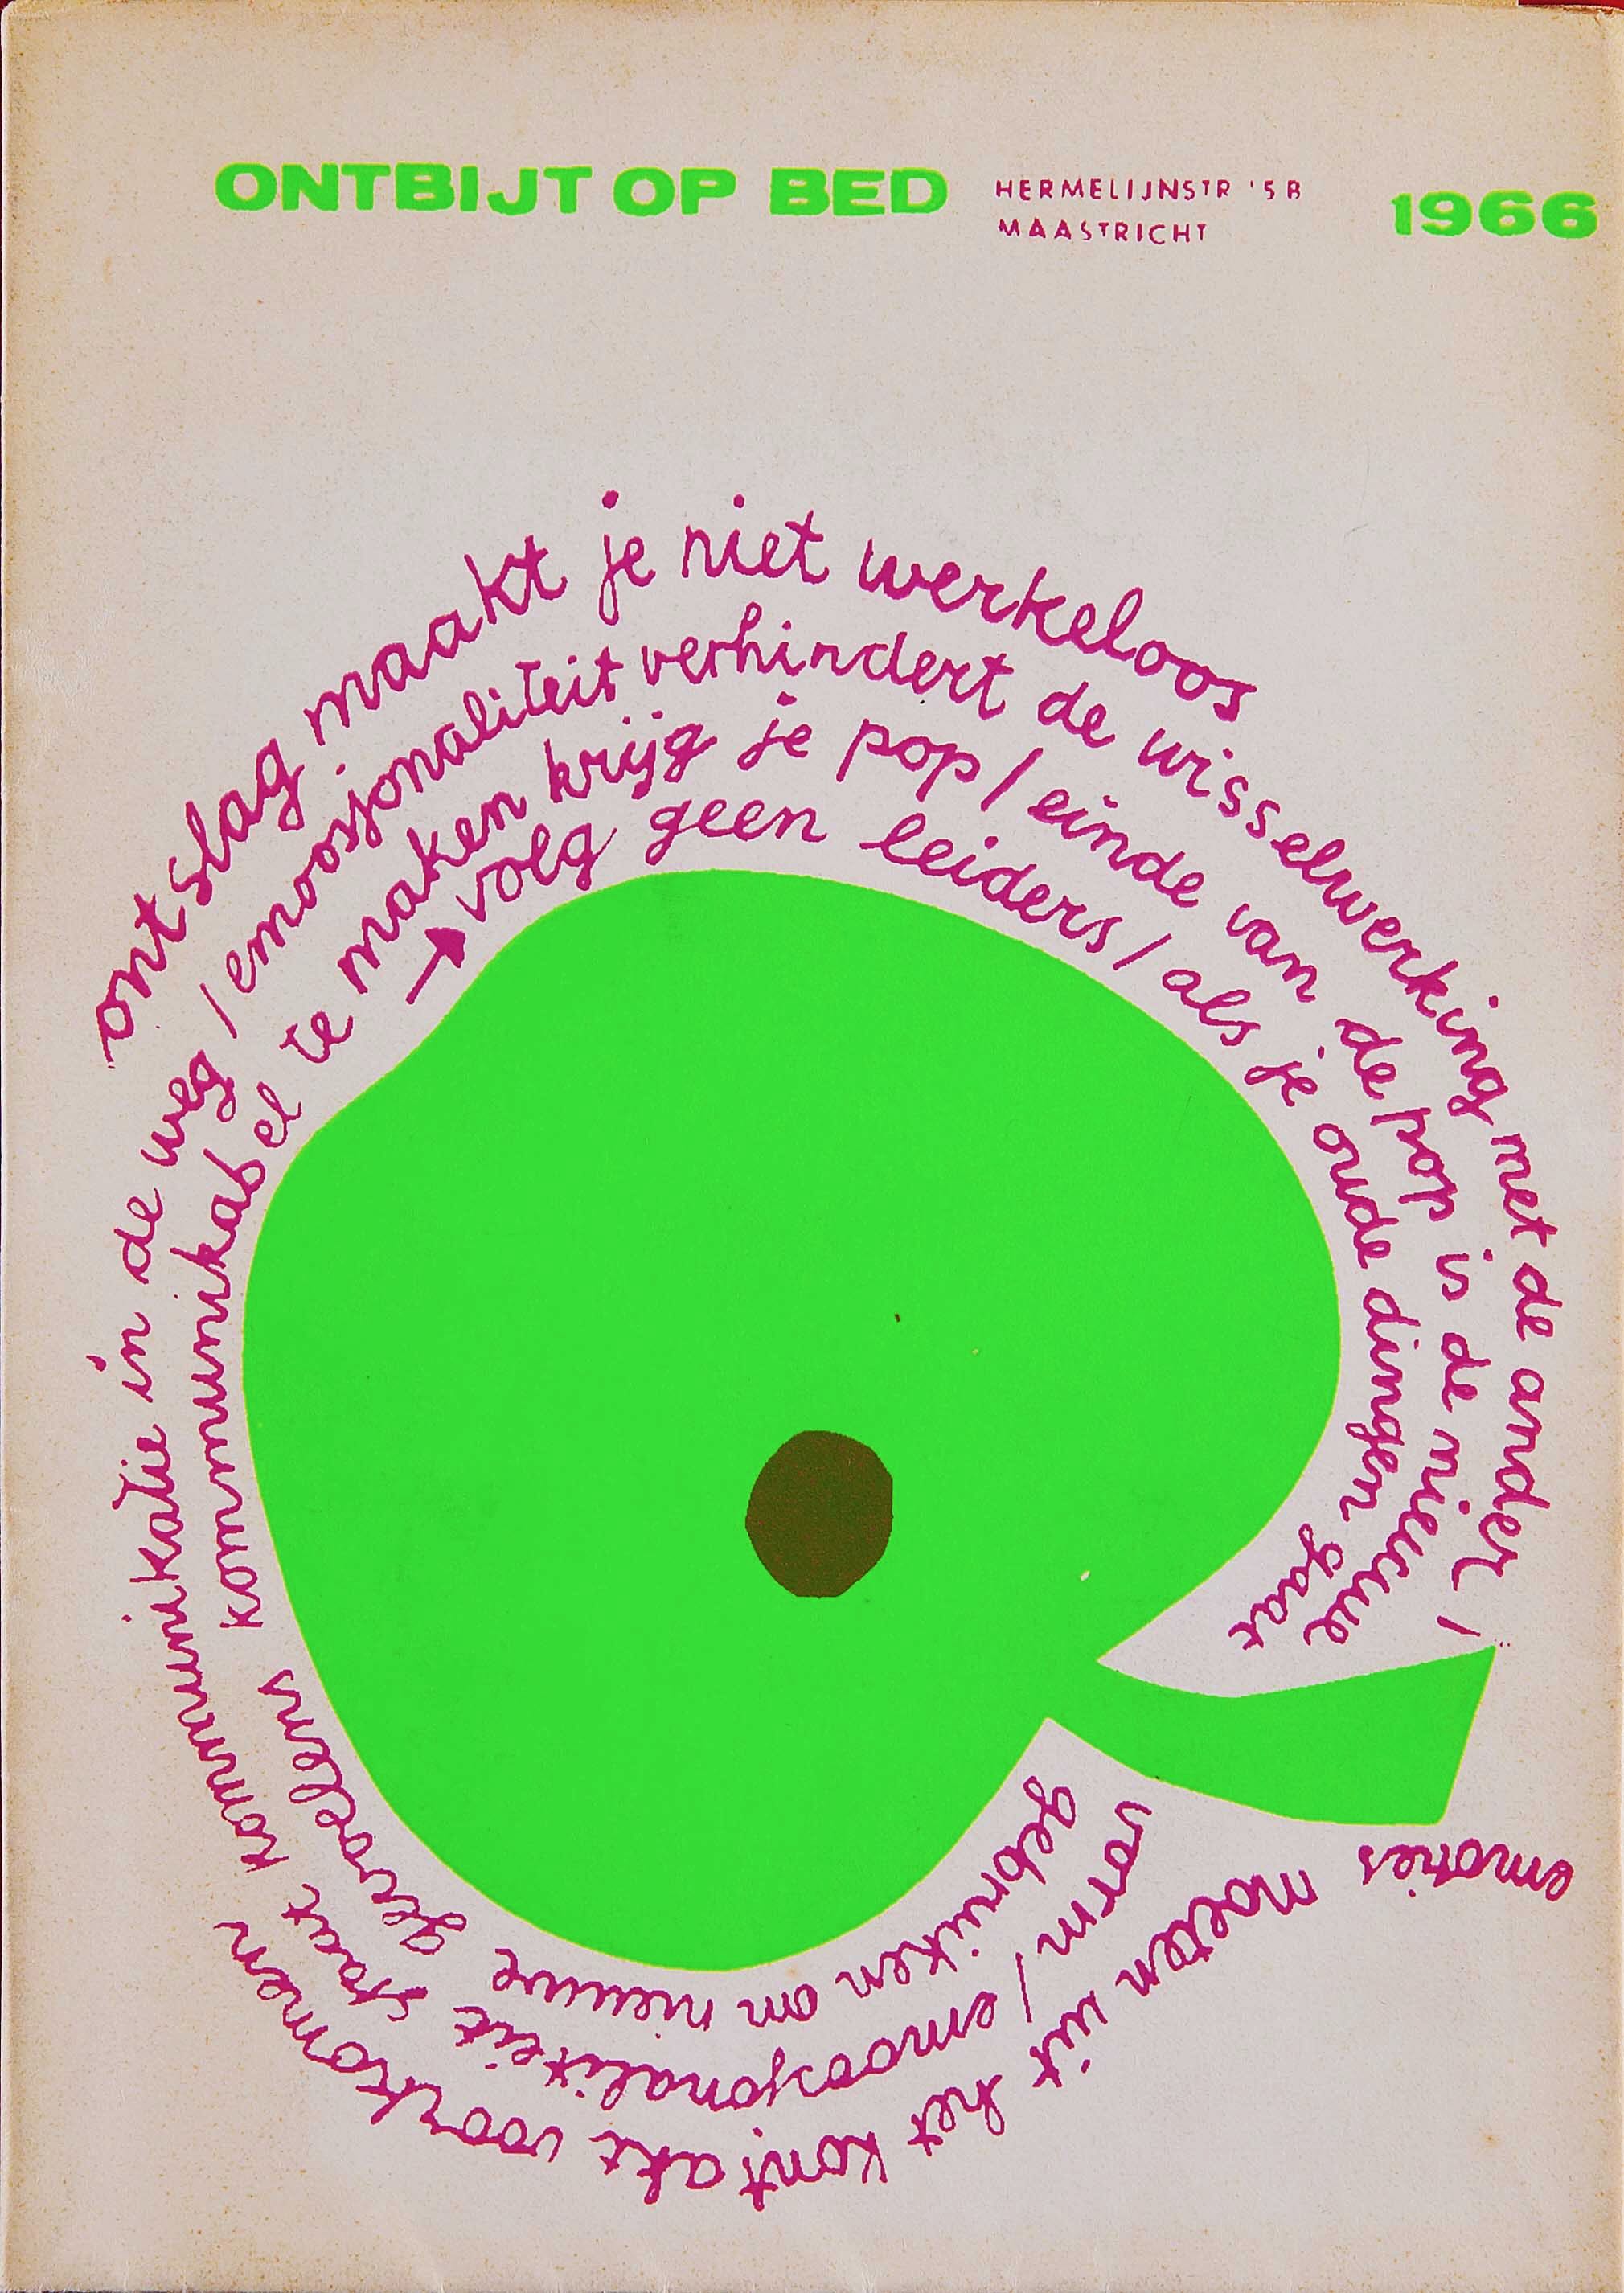 ONTBIJT OP BED
HERMELIJNSTR '5B
MAASTRICHT
1966
→ volg geen leiders / als je oude dingen gaat
gebruiken om nieuwe gevoelens
kommunikabel te maken krijg je pop / einde van de pop is de nieuwe
vorm / emoosjonaliteit staat kommunikatie in de weg / emoosjonaliteit verhindert de wisselwerking met de ander /
emoties moeten uit het kontakt voortkomen
ontslag maakt je niet werkeloos